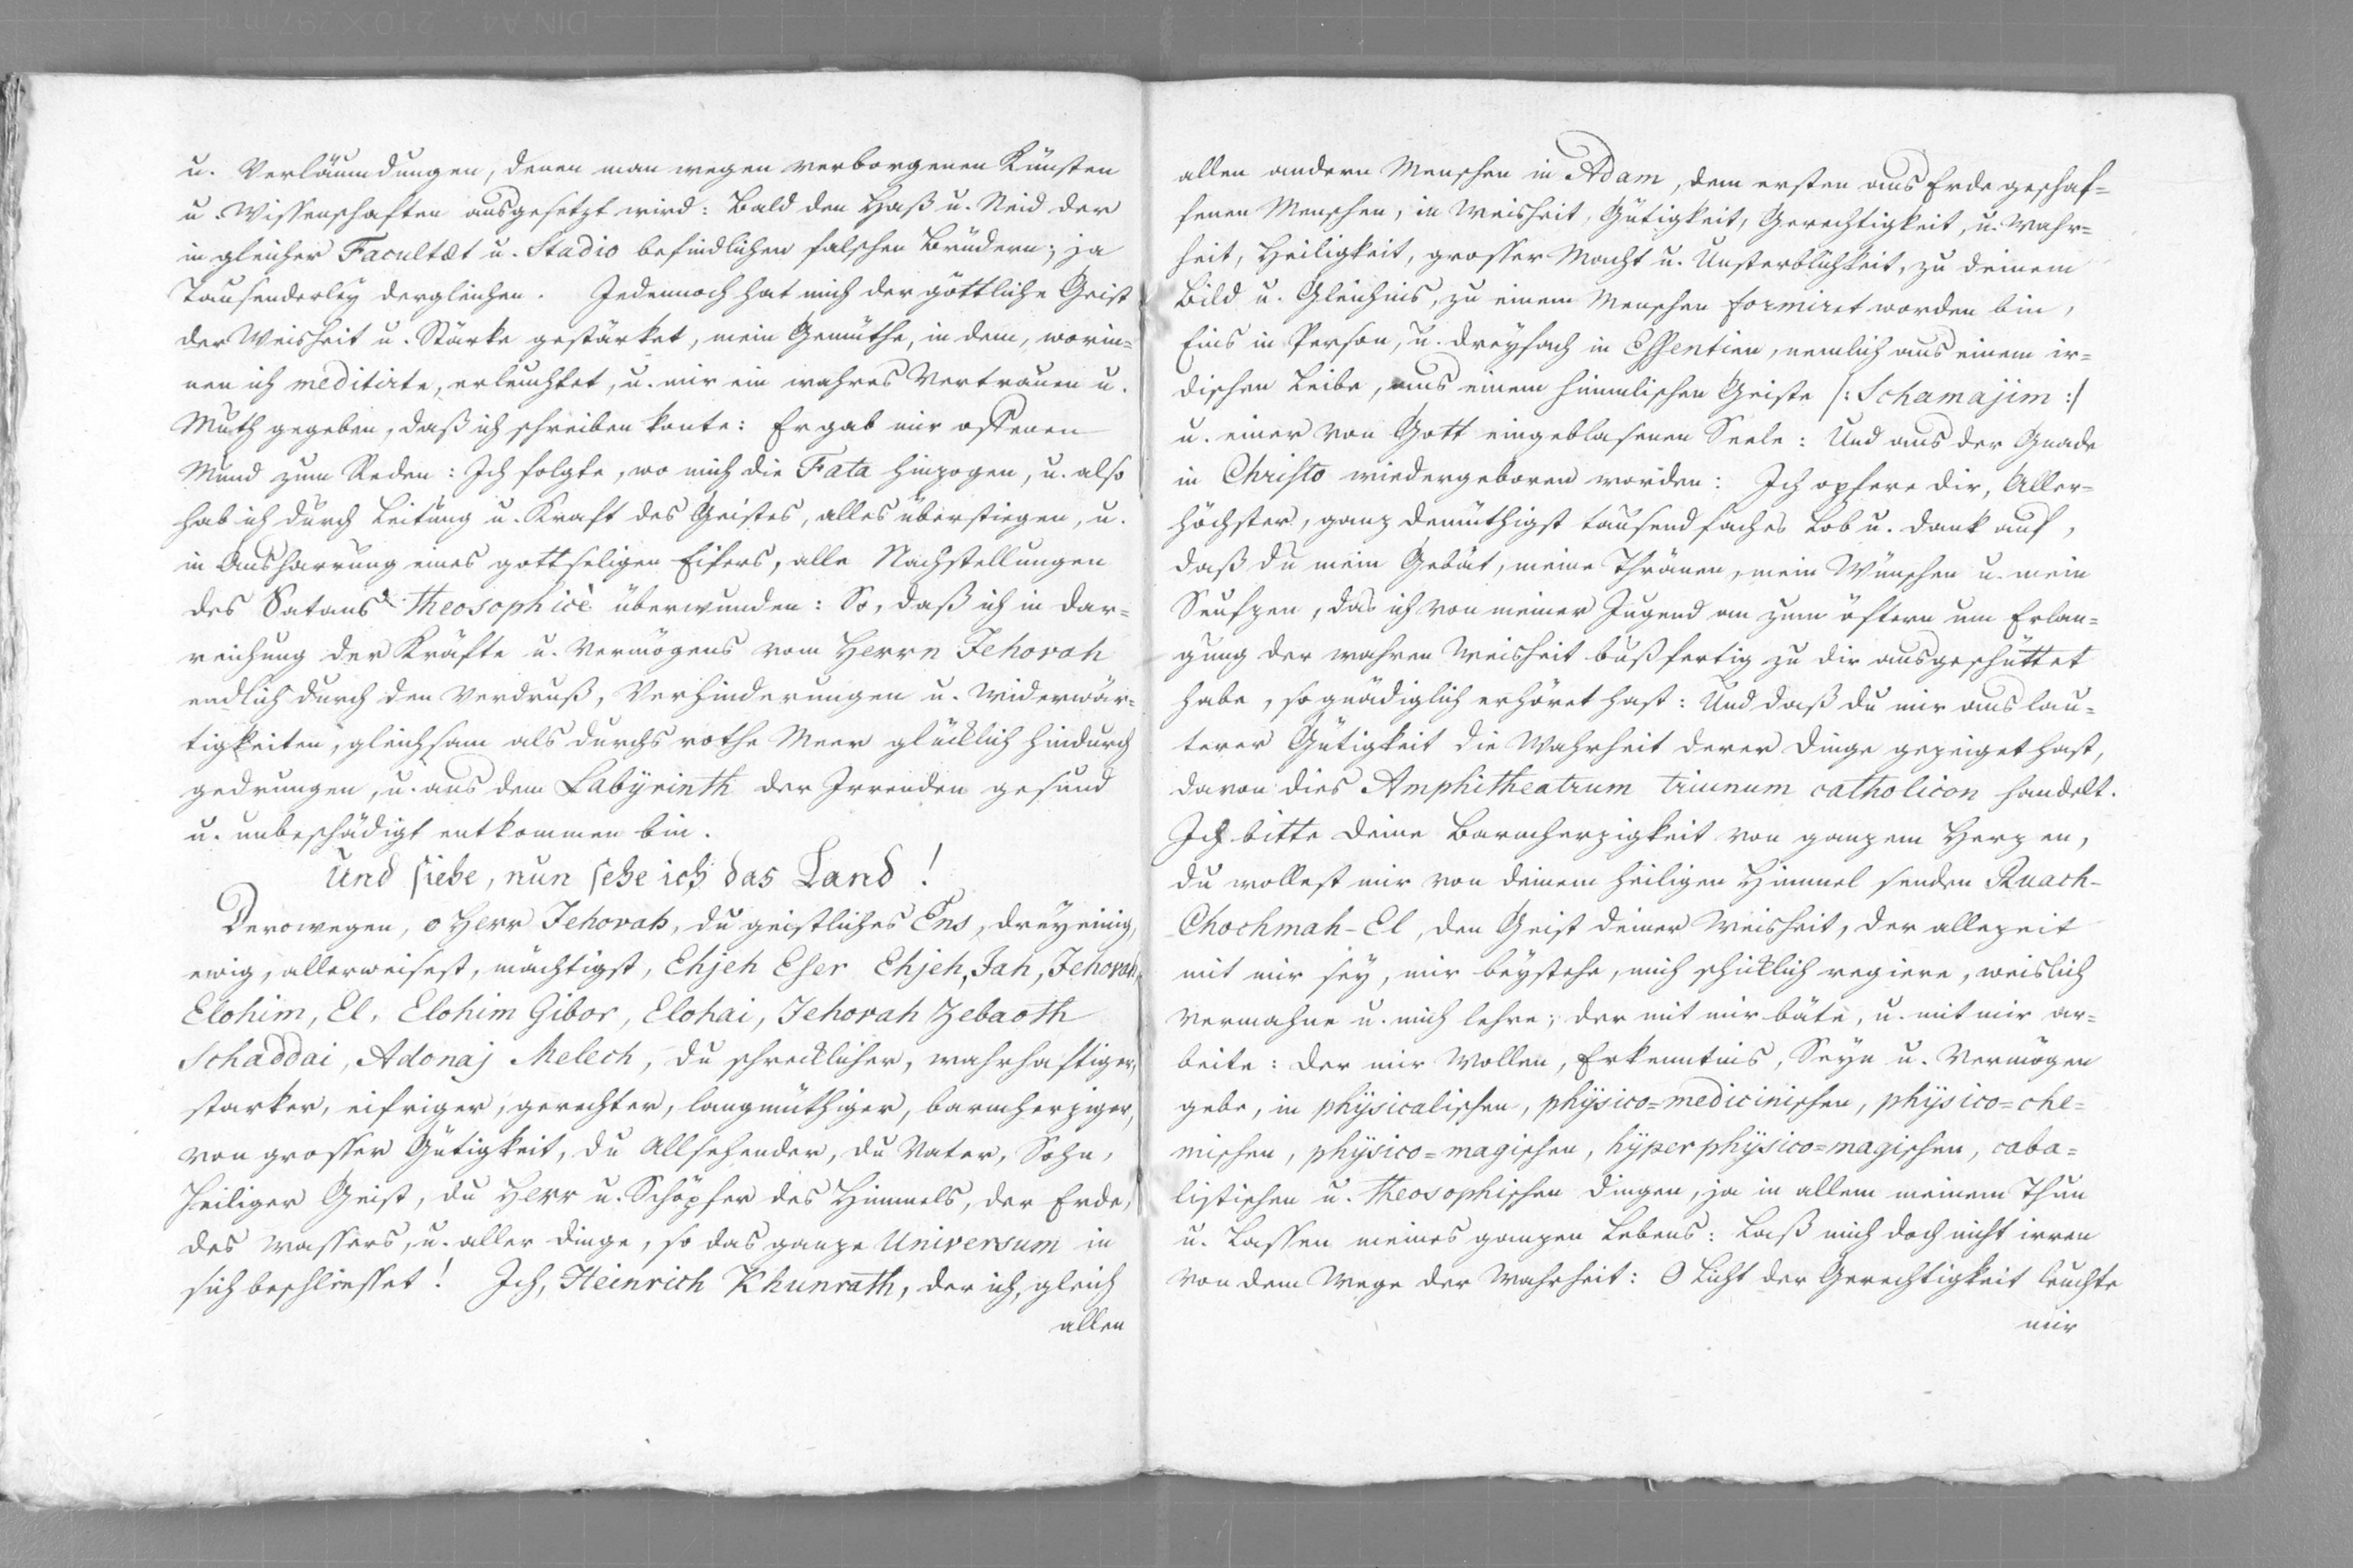 u. Verläumdungen, denen man wegen verborgenen Künsten
u. Wissenschaften ausgesetzt wird: Bald den Haß u. Neid der
in gleicher Facultæt u. Stadio befindlichen falschen Brüdern; ja
Tausenderley dergleichen. Jedennoch hat mich der göttliche Geist
der Weisheit u. Stärke gestärket, mein Gemüthe, in dem, worin=
nen ich meditirte, erleuchtet, u. mir ein wahres Vertrauen u.
Muth gegeben, daß ich schreiben konte: Er gab mir offenen
Mund zum Reden: Ich folgte, wo mich die Fata hinzogen, u. also
hab ich durch Leitung u. Kraft des Geistes, alles überstiegen, u.
in Ausharrung eines gottseligen Eifers, alle Nachstellungen
des Satans Theosophicè überwunden: So, daß ich in Dar=
reichung der Kräfte u. Vermögens vom Herrn Jehovah
endlich durch den Verdruß, Verhinderungen u. Widerwär=
tigkeiten, gleichsam als durchs rothe Meer glücklich hindurch
gedrungen, u. aus dem Labyrinth der Irrenden gesund
u. unbeschädigt entkommen bin.
Und siehe, nun sehe ich das Land!
Derowegen, o Herr Jehovah, du geistliches Ens, dreyeinig,
ewig, allerweisest, mächtigst, Ehjeh Eser Ehjeh, Jah, Jehovah,
Elohim, El, Elohim Gibor, Elohai, Jehovah Zebaoth
Schaddai, Adonaj Melech, du schrecklicher, wahrhaftiger,
starker, eifriger, gerechter, langmüthiger, barmherziger,
von grosser Gütigkeit, du Allsehender, du Vater, Sohn,
heiliger Geist, du Herr u. Schöpfer des Himmels, der Erde,
des Wassers, u. aller Dinge, so das ganze Universum in
sich beschliesset! Ich, Heinrich Khunrath, der ich, gleich
allen
allen andern Menschen in Adam, dem ersten aus Erde geschaf=
fenen Menschen, in Weisheit, Gütigkeit, Gerechtigkeit, u. Wahr=
heit, Heiligkeit, grosser Macht u. Unsterblichkeit, zu deinem
Bild u. Gleichnis, zu einem Menschen formiret worden bin,
Eins in Person, u. dreyfach in Essentien, nemlich aus einem ir=
dischen Leibe, aus einem himmlischen Geiste /: Schamajim :/
u. einer von Gott eingeblasenen Seele: Und aus der Gnade
in Christo wiedergeboren worden: Ich opfere dir, Aller=
höchster, ganz demüthigst tausendfaches Lob u. Dank auf,
daß du mein Gebät, meine Thränen, mein Wünschen u. mein
Seufzen, das ich von meiner Jugend an zum öftern um Erlan=
gung der wahren Weisheit bußfertig zu dir ausgeschüttet
habe, so gnädiglich erhöret hast: Und daß du mir aus lau=
terer Gütigkeit die Wahrheit derer Dinge gezeiget hast,
davon dies Amphitheatrum triunum catholicon handelt.
Ich bitte deine Barmherzigkeit von ganzem Herzen,
du wollest mir von deinem heiligen Himmel senden Ruach-
Chochmah-El, den Geist deiner Weisheit, der allezeit
mit mir sey, mir beystehe, mich schicklich regiere, weislich
vermahne u. mich lehre; der mit mir bäte, u. mit mir ar=
beite: der mir Wollen, Erkenntnis, Seyn u. Vermögen
gebe, in physicalischen, physico=medicinischen, physico=che=
mischen, physico=magischen, hyperphysico=magischen, caba=
listischen u. theosophischen Dingen, ja in allem meinem Thun
u. Lassen meines ganzen Lebens: Laß mich doch nicht irren
von dem Wege der Wahrheit: O Licht der Gerechtigkeit leuchte
mir